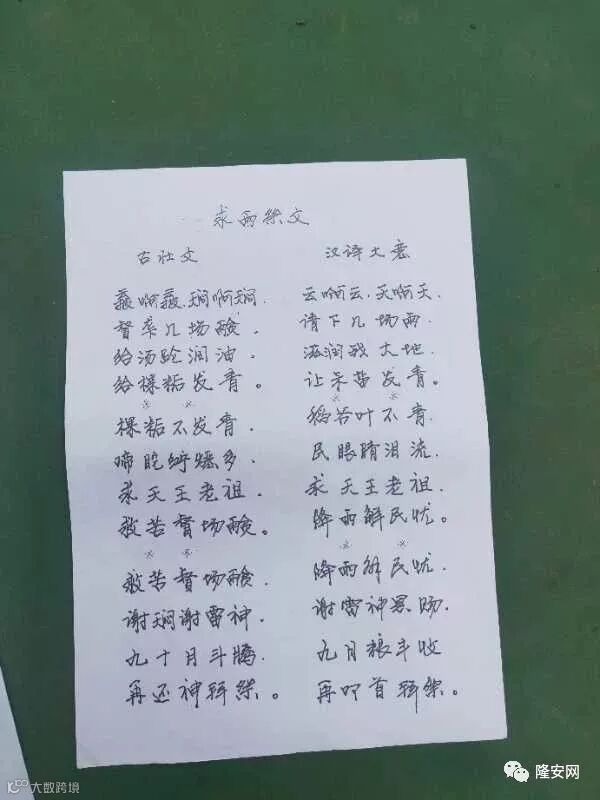 求雨祭文
古壮文
啊 啊
几场
给汤 润油
给棵粘发青。
※ ※
棵粘不发青.
啼 多.
求天王老祖.
救苦 场 。
※ ※
救苦 场
谢 谢雷神.
九十月斗腾.
再还神拜祭。
汉译大意
云啊云.天啊天.
请下几场雨.
滋润我大地.
让禾苗发青。
※ ※
稻谷叶不青.
民眼睛泪流.
求天王老祖.
降雨解民忧。
※ ※
降雨解民忧.
谢雷神恩赐.
九月粮丰收
再叩首拜祭。
隆安网
大数跨境